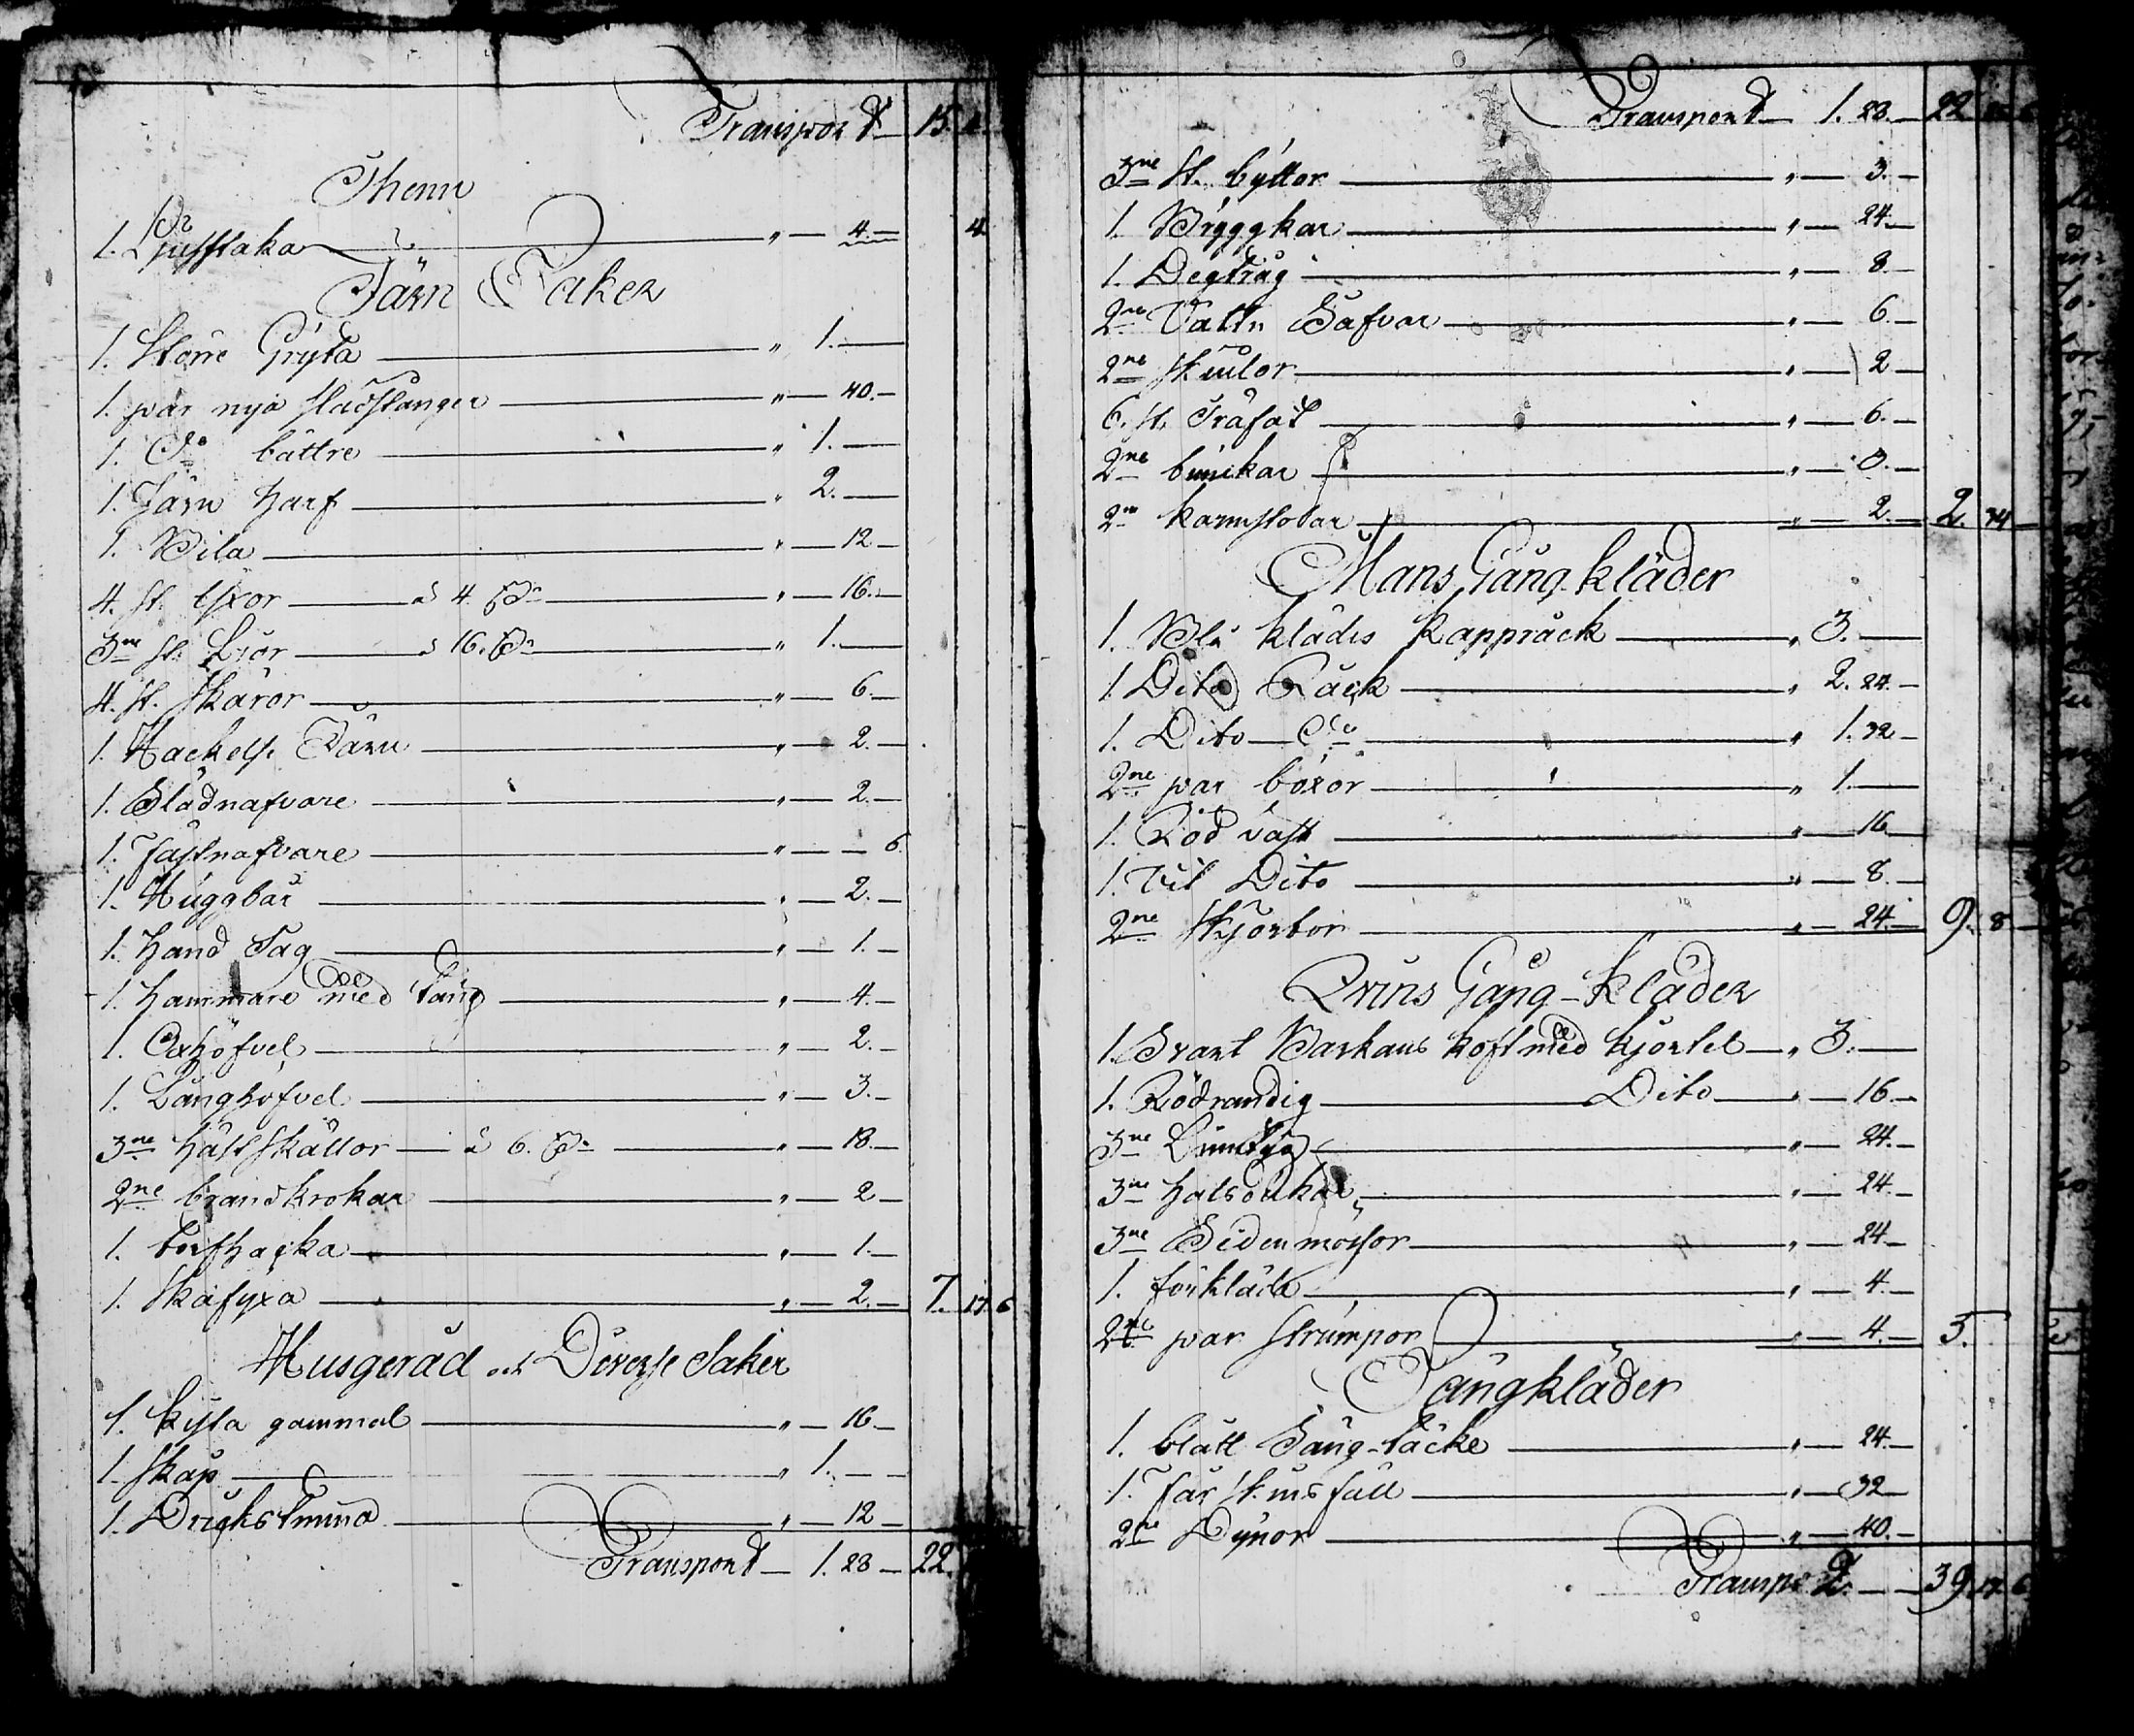 Transport — 15. 4.
Thenn
1. Ljusstaka — " — 4. — 4.
Järn Saker
1. Större Gryta — " 1. —
1. par nya sladstänger — " — 40. —
1. do bättre — " 1. —
1. Järn harf — " 2. —
1. Bila — " — 12 —
4. st. Yxor — à 4. — " — 16. —
3ne st. Lior — à 16. — " 1. —
4. st. Skäror — " — 6. —
1. Hackelse Järn — " — 2. —
1. Sladnafvare — " — 2. —
1. Fästnafvare — " — — 6.
1. Huggbär — " — 2. —
1. Hand Sag — " — 1. —
1. hammare med tång — " — 4. —
1. Oxhöfvel — " — 2. —
1. Långhöfvel — " — 3. —
3ne häst skällor — à 6. — " — 18. —
2ne brandkrokar — " — 2 —
1. torfhacka — " — 1. —
1. Skafyxa — " — 2. — 7. 17. 6
Husgeråd och Diverse Saker
1. kista gammal — " — 16 —
1. Skåp — " 1. — —
1. Drickstunna — " — 12 —
Transport — 1. 28 — 22.
Transport — 1. 28. — 22
3ne st. byttor — " — 3. —
1. Bryggkar — " — 24. —
1. Degtråg — " — 8 —
2ne Vattn Säfvar — " — 6. —
2ne Skulor — " — 2 —
6. st. Träfat — " — 6. —
2ne bunkar — "
2ne karmstolar — " — 2. — 2. 34 —
Mans Gångkläder
1. Blå klädes Kappråck — " 3. —
1. Dito Råck — " 2. 24. —
1. Dito — do — " 1. 32 —
2ne par böxor — " 1. —
1. Röd väst — " — 16 —
1. Vit Dito — " — 8. —
2ne Skjortor — " — 24. — 9. 8 —
Qvins Gång-Kläder
1. Svart Barkans koft med kjortel — " 3. —
1. Rödrandig — Dito — " — 16. —
3ne Linntyg — " — 24. —
3ne halsdukar — " — 24. —
3ne Siden mössor — " — 24 —
1. förkläde — " — 4. —
2ne par Strumpor — " — 4. — 5.
Sängkläder
1. blått Säng-täcke — " — 24. —
1. Får skins fäll — " — 32 —
2ne Dynor — " — 40. —
Transport — 39. 17. 6